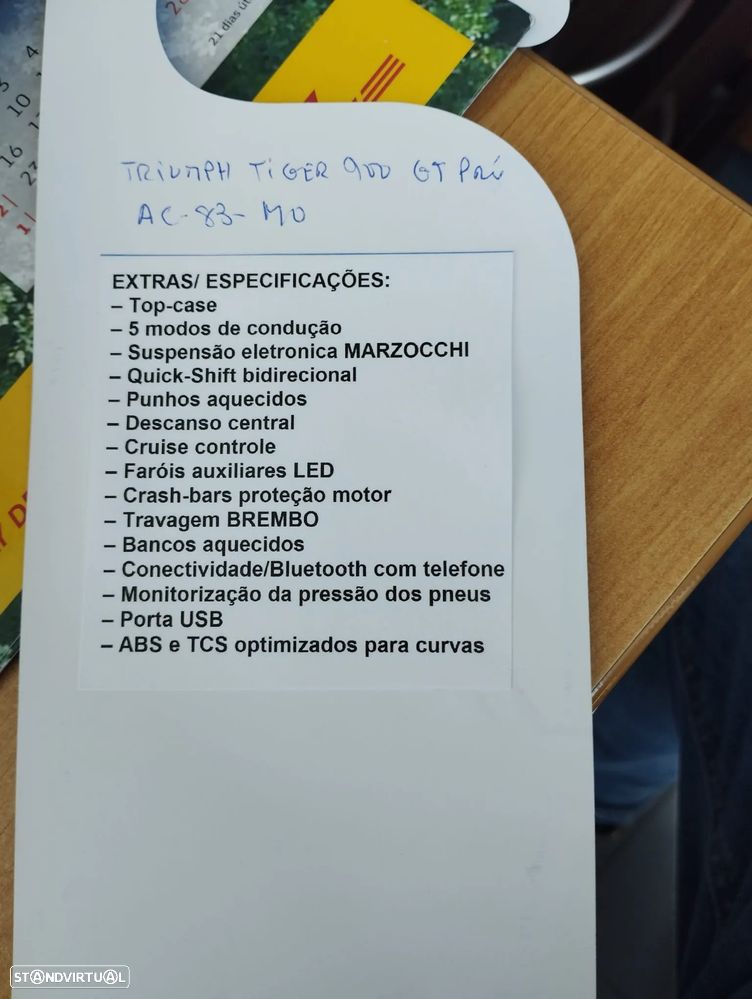 21 dias út
4
3
10
16
23
TRIUMPH TIGER 900 GT PRO
AC-83-MO
EXTRAS/ ESPECIFICAÇÕES:
– Top-case
– 5 modos de condução
– Suspensão eletronica MARZOCCHI
– Quick-Shift bidirecional
– Punhos aquecidos
– Descanso central
– Cruise controle
– Faróis auxiliares LED
– Crash-bars proteção motor
– Travagem BREMBO
– Bancos aquecidos
– Conectividade/Bluetooth com telefone
– Monitorização da pressão dos pneus
– Porta USB
– ABS e TCS optimizados para curvas
STANDVIRTUAL